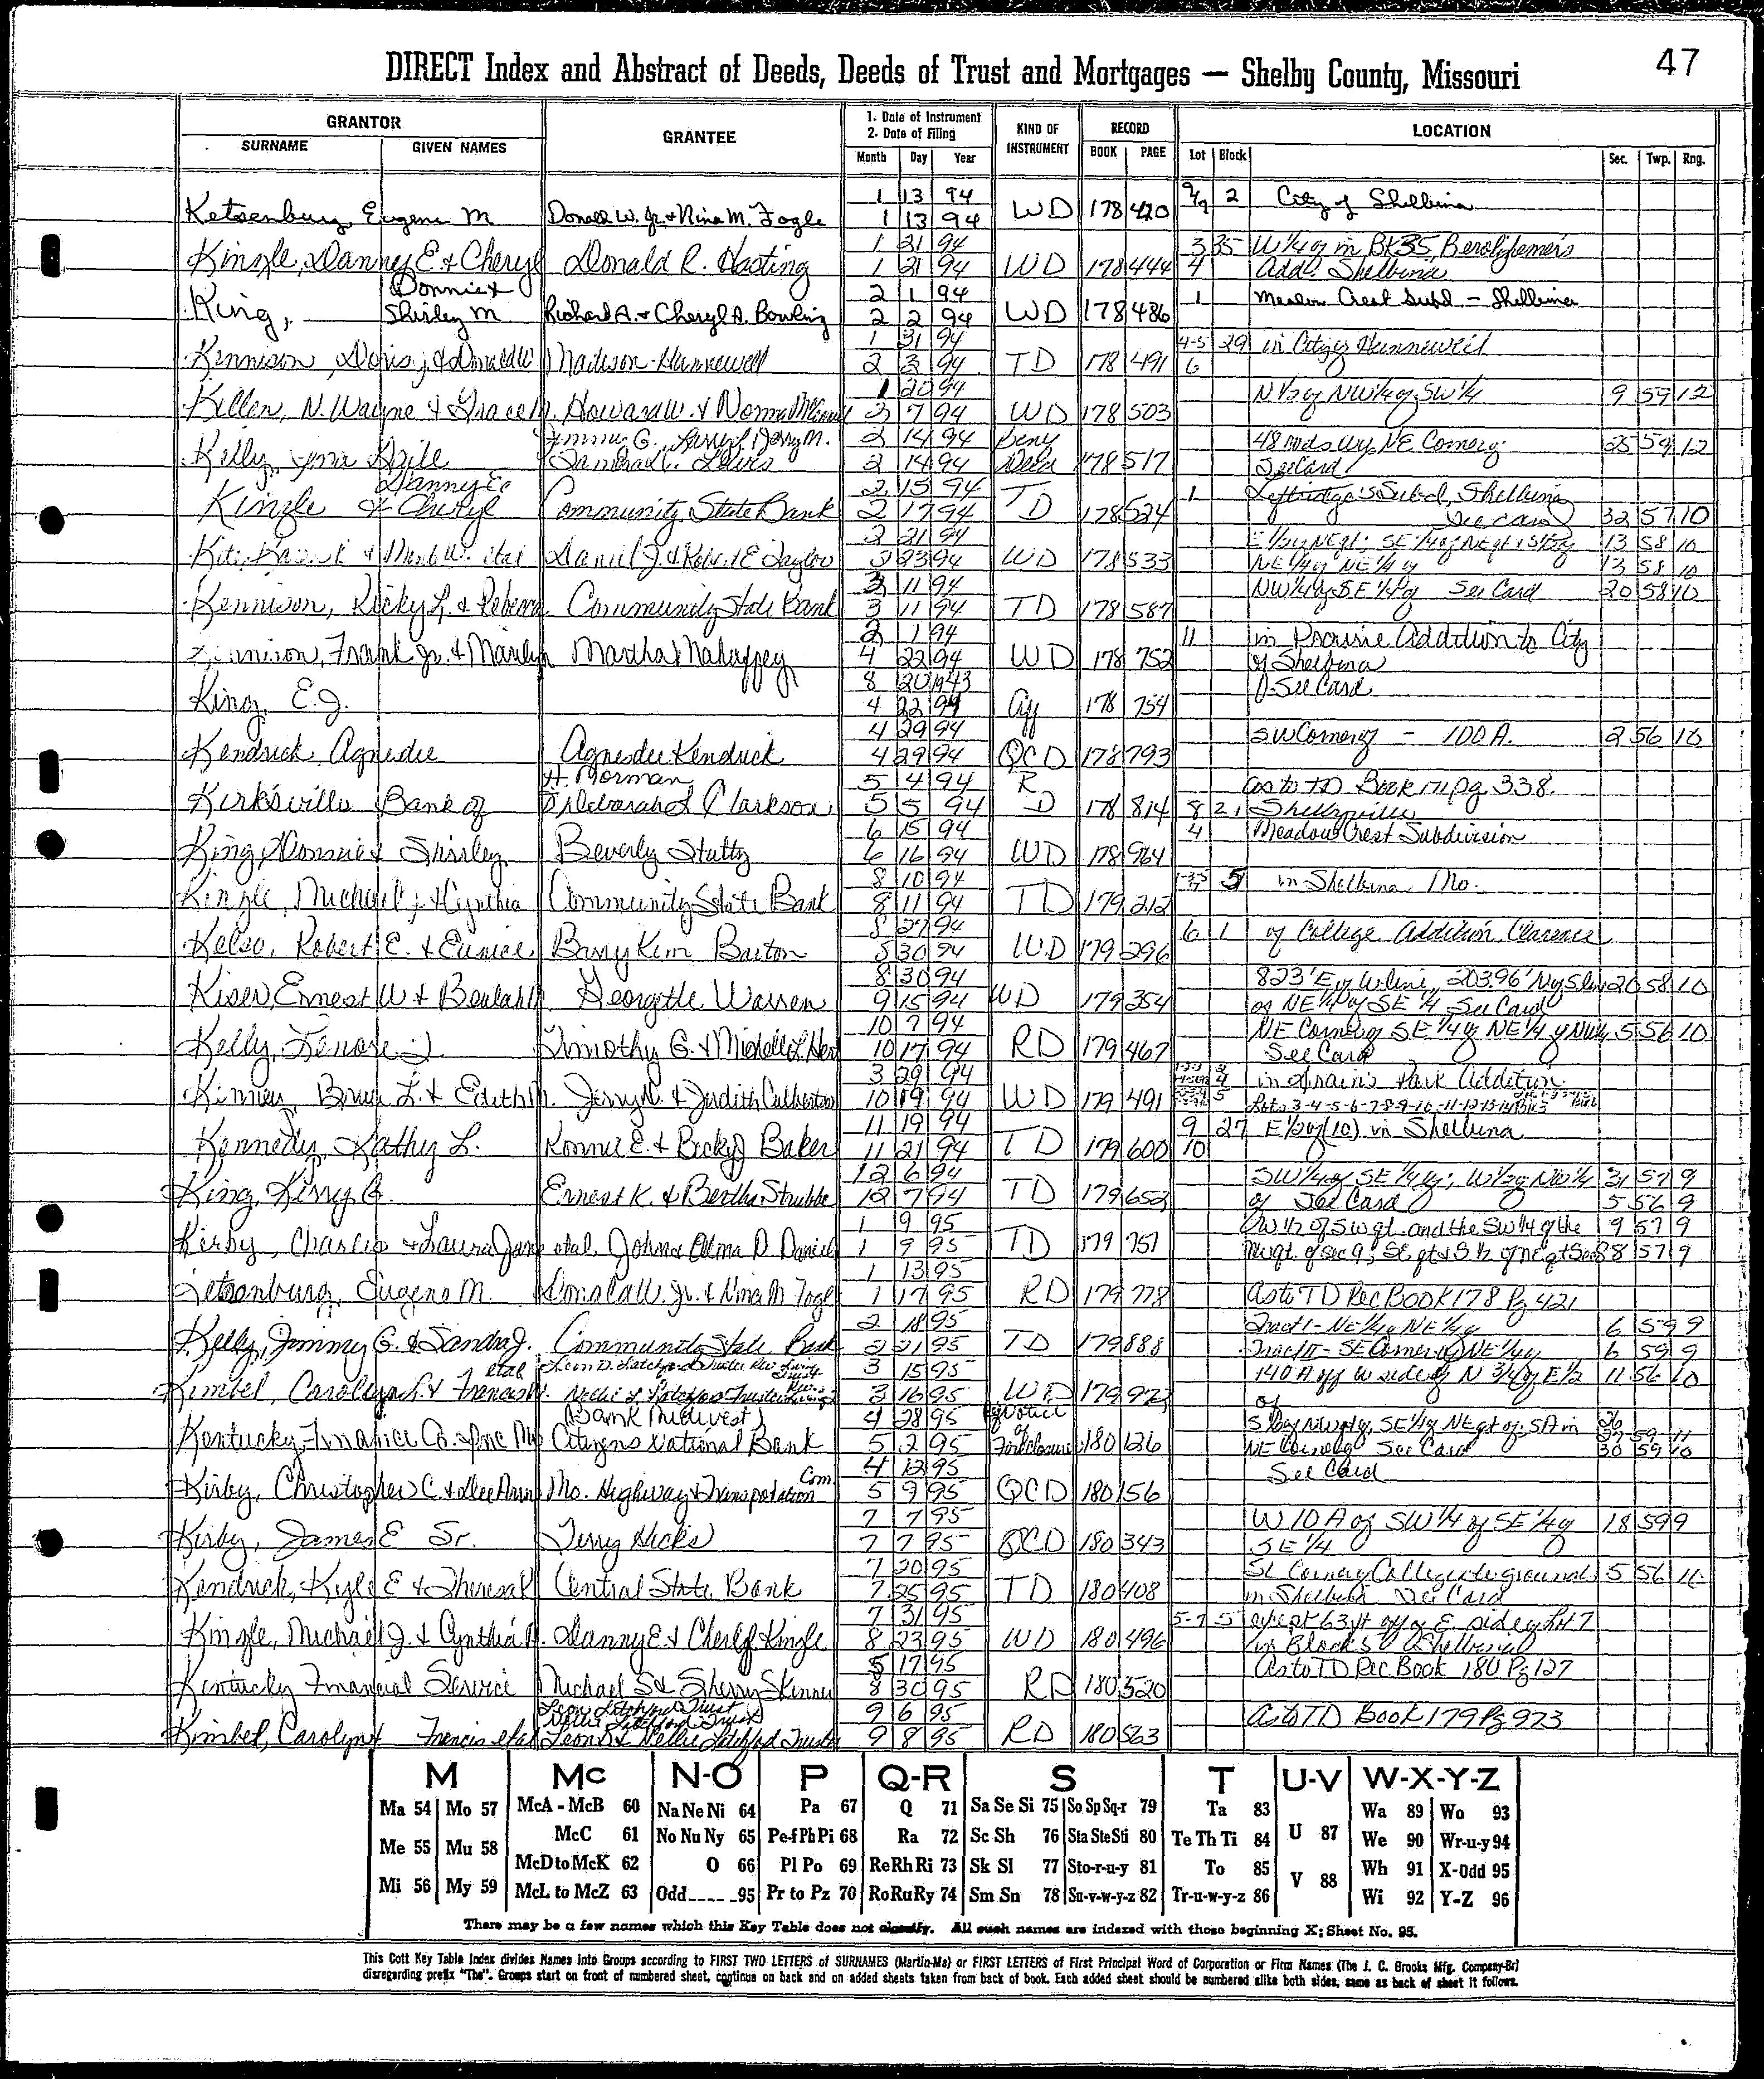 47
DIRECT Index and Abstract of Deeds, Deeds of Trust and Mortgages — Shelby County, Missouri
GRANTOR GRANTEE 1. Date of Instrument 2. Date of Filing KIND OF INSTRUMENT RECORD LOCATION
SURNAME GIVEN NAMES Month Day Year BOOK PAGE Lot Block Sec. Twp. Rng.
1 13 94 2 City of Shelbina
Ketsenburg, Eugene M Donald W. Jr. & Nina M. Fogle 1 13 94 WD 178 420
1 21 94 3 35 W 1/4 of in BK35,
Kinzle, Danny E & Cheryl Donald R. Hasting 1 21 94 WD 178 444 4 Add. Shelbina
Donnie & 2 1 94 1 Meadow Crest Subd - Shelbina
King, Shirley M Richard A. & Cheryl A. Bowling 2 2 94 WD 178 486
1 31 94 4-5 29 in City of Hunnewell
Kennison, Doris J. & Donald W Madison-Hunnewell 2 3 94 TD 178 491 6
1 20 94 N 1/2 of NW 1/4 of SW 1/4 9 59 12
Killen, N. Wayne & Grace Howard W. & Norma 2 7 94 WD 178 503
2 14 94 Beny 48 rods W of NE Corner of 25 59 12
Kelly, 2 14 94 Deed 178 517 See Card
Danny E. 2 15 94 1 Subd, Shelbina
Kinzle & Cheryl Community State Bank 2 17 94 TD 178 524 See Card 32 57 10
2 21 94 13 58 10
Daniel J. & Robert E Taylor 2 23 94 WD 178 533 NE 1/4 of NE 1/4 of 13 58 10
3 11 94 NW 1/4 of SE 1/4 of See Card 20 58 10
Kennison, Ricky L. & Rebecca Community State Bank 3 11 94 TD 178 587
2 1 94 11 in Prairie Addition to City
Kennison, Frank Jr. & Marilyn Martha Mahaffey 4 22 94 WD 178 752 of Shelbina
8 20 1943 See Card
King, E.J. 4 22 94 Aff 178 754
4 29 94 SW Corner of - 100 A. 2 56 10
Kendrick, Agnedee Agnedee Kendrick 4 29 94 QCD 178 793
H. Norman 5 4 94 R As to TD Book 171 pg 338.
Kirksville Bank of & Deborah L Clarkson 5 5 94 D 178 814 8 21 Shelbyville
6 15 94 4 Meadow Crest Subdivision
King, Donnie & Shirley Beverly Stutty 6 16 94 WD 178 964
8 10 94 5 in Shelbina, Mo.
Kinzle, Michael J. & Cynthia Community State Bank 8 11 94 TD 179 212
8 27 94 6 1 of College Addition, Clarence
Kelso, Robert E. & Eunice Barry Kim Barton 8 30 94 WD 179 296
8 30 94 823' E of W line, 203.96' N of S line 20 58 10
Kiser, Ernest W & Beulah M Georgette Warren 9 15 94 WD 179 354 of NE 1/4 of SE 1/4 See Card
10 7 94 NE Corner of SE 1/4 of NE 1/4 of 5 56 10
Kelly, Lenore J Timothy G. & 10 17 94 RD 179 467 See Card
3 29 94 4 in Park Addition
Kinney, Bruce L. & Edith M. Jerry D. & Judith Culbertson 10 19 94 WD 179 491 5 Lots 3-4-5-6-7-8-9-10-11-12-13-14
11 19 94 9 27 E 1/2 of (10) in Shelbina
Kennedy, Kathy L. Ronnie E. & Becky J Baker 11 21 94 TD 179 600 10
12 6 94 SW 1/4 of SE 1/4 of; W 1/2 of NW 1/4 31 57 9
King, Kerry G. Ernest K. & Bertha Strubbe 12 7 94 TD 179 652 of See Card 5 56 9
1 9 95 W 1/2 of SW qt. and the SW 1/4 of the 9 57 9
Kirby, Charles & Laura Jane etal John & Alma D. Daniel 1 9 95 TD 179 751 NW qt. of sec 9; SE qt & S 1/2 of NE qt Sec 8 8 57 9
1 13 95
Ketsenburg, Eugene M. Donald W. Jr. & Nina M Fogle 1 17 95 RD 179 778 As to TD Rec BOOK 178 Pg 421
2 18 95 Tract I - NE 1/4 of NE 1/4 of 6 59 9
Kelly, Jimmy G. & Sandra J. Community State Bank 2 21 95 TD 179 888 Tract II - SE Corner of NE 1/4 of 6 59 9
etal 3 15 95 140 A off W side of N 3/4 of E 1/2 11 56 10
Kimbel, Carolyn L & Francis W. 3 16 95 WD 179 922 of
(Bank Midwest) 4 28 95 Notice of
Kentucky Finance Co. Inc Citizens National Bank 5 2 95 Foreclosure 180 126 NE Corner of See Card 30 59 10
Com 4 12 95 See Card
Kirby, Christopher C. & Lee Ann Mo. Highway & Transportation 5 9 95 QCD 180 156
7 7 95 W 10 A of SW 1/4 of SE 1/4 of 18 59 9
Kirby, James E Sr. Terry Hicks 7 7 95 QCD 180 343 SE 1/4
7 20 95 SE Corner of College grounds 5 56 10
Kendrick, Kyle E & Theresa Central State Bank 7 25 95 TD 180 408 in Shelbina See Card
7 31 95 5-7 5 except 63 ft off of E side of Lot 7
Kinzle, Michael J. & Cynthia A. Danny E & Cheryl Kinzle 8 23 95 WD 180 496 in Block 5 Shelbina
5 17 95 As to TD Rec. Book 180 Pg 127
Kentucky Financial Service Michael S & Sherry Skinner 8 30 95 RD 180 520
9 6 95 As to TD Book 179 Pg 923
Kimbel, Carolyn & Francis etal Leon D & Nellie Latchford Trustee 9 8 95 RD 180 563
M Mc N-O P Q-R S T U-V W-X-Y-Z
Ma 54 Mo 57 McA - McB 60 Na Ne Ni 64 Pa 67 Q 71 Sa Se Si 75 So Sp Sq-r 79 Ta 83 Wa 89 Wo 93
Me 55 Mu 58 McC 61 No Nu Ny 65 Pe-f Ph Pi 68 Ra 72 Sc Sh 76 Sta Ste Sti 80 Te Th Ti 84 U 87 We 90 Wr-u-y 94
McD to McK 62 O 66 Pl Po 69 Re Rh Ri 73 Sk Sl 77 Sto-r-u-y 81 To 85 V 88 Wh 91 X-Odd 95
Mi 56 My 59 McL to McZ 63 Odd 95 Pr to Pz 70 Ro Ru Ry 74 Sm Sn 78 Su-v-w-y-z 82 Tr-u-w-y-z 86 Wi 92 Y-Z 96
There may be a few names which this Key Table does not classify. All such names are indexed with those beginning X; Sheet No. 95.
This Cott Key Table Index divides Names Into Groups according to FIRST TWO LETTERS of SURNAMES (Martin-Ma) or FIRST LETTERS of First Principal Word of Corporation or Firm Names (The J. C. Brooks Mfg. Company-Br)
disregarding prefix "The". Groups start on front of numbered sheet, continue on back and on added sheets taken from back of book. Each added sheet should be numbered alike both sides, same as back of sheet it follows.